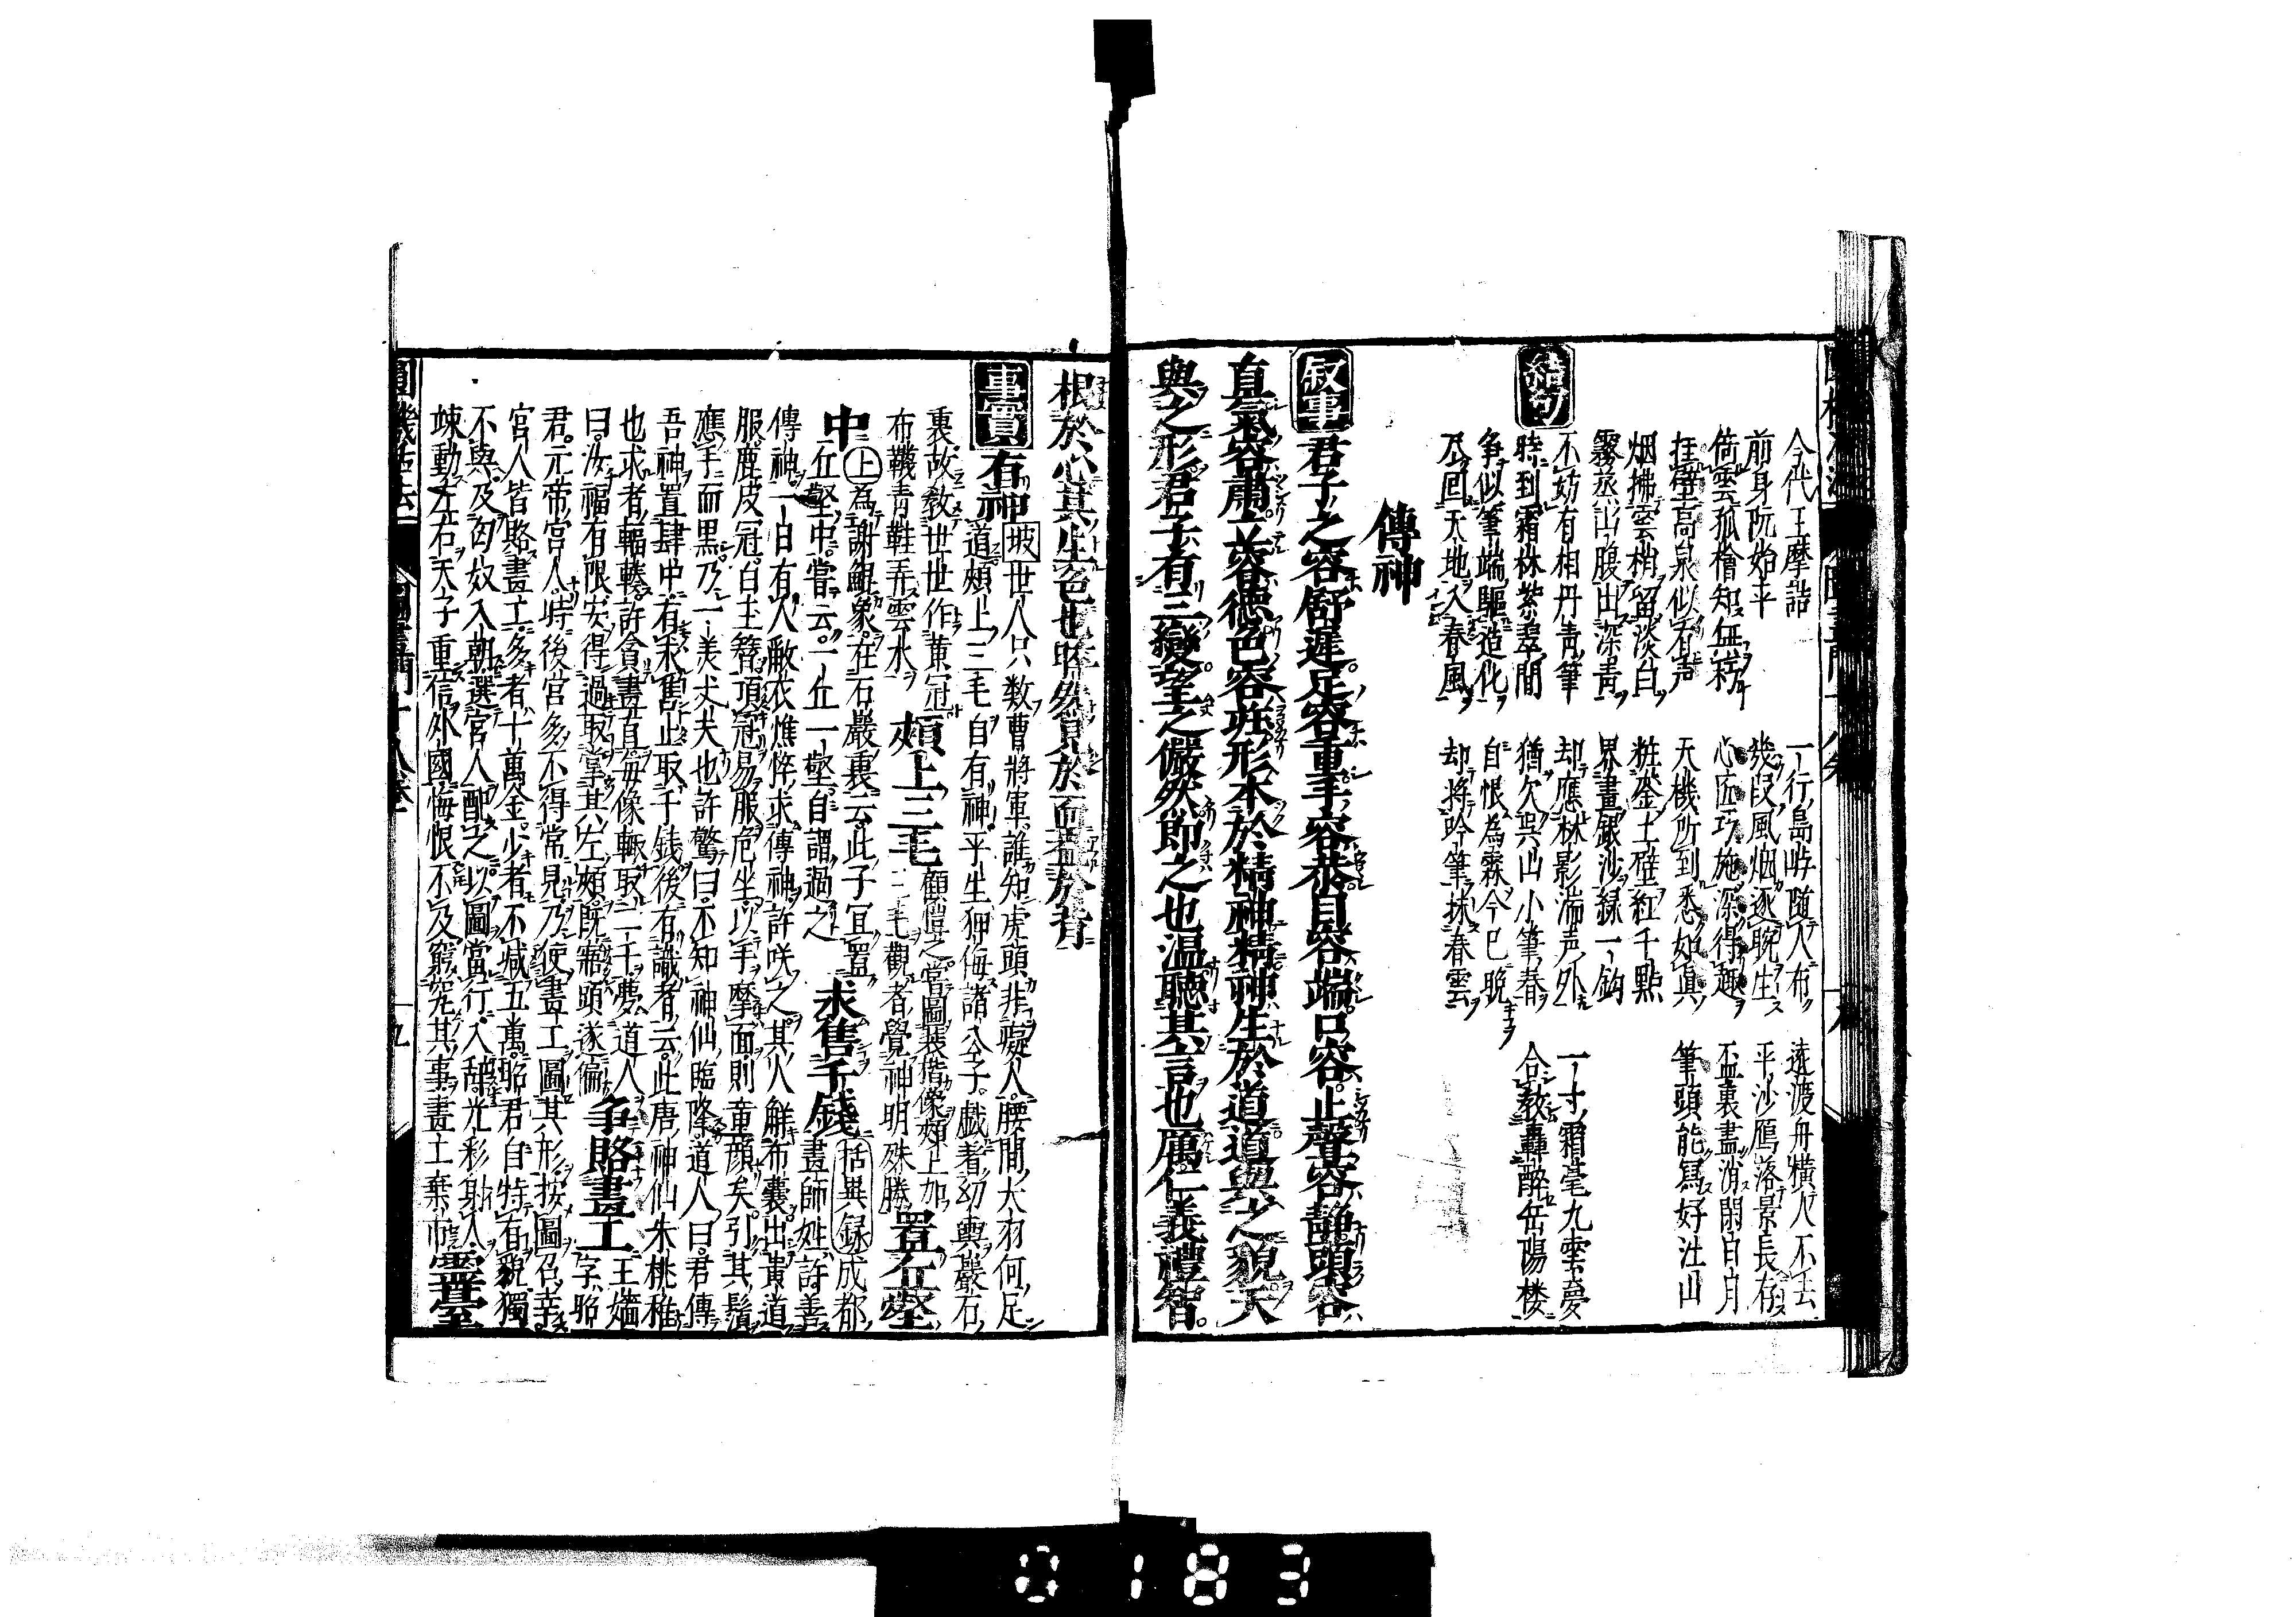 今代王摩詰　一行島嶼随人布　遠渡舟横人不去
前身阮始平　幾段風烟逐晩生　平沙鴈落景長存
倚雲孤檜知無　心匠巧施深得趣　盃裏盡消閑白月
挂壁高泉似有声　天機所到悉如真　筆頭能写好江山
烟拂雲梢留淡白　粧釜土壁紅千點
霧蒸山腹出深青　界畫銀沙緑一鈎
不妨有相丹青筆　却應林影湍声外　一寸霜毫九雲夢
結句　時到霜林紫翠間　猶欠呉山小筆春　合教轟醉岳陽楼
争似筆端驅造化　自恨為霖今已晩
回天地入春風　却将吟筆抹春雲
傳神
叙事　君子之容舒遲足容重手容恭目容端口容止聲容静頭容
直氣容肅立容徳色容莊形本於精神精神生於道道與之貌天
與之形君子有三變望之儼然即之也温聽其言也厲仁義禮智
根於心其生色也睟然見於面盎於背
事實　有神　坡　世人只数曹將軍誰知虎頭非癡人腰間大羽何足
道頬上三毛自有神平生狎侮諸公子戯著幼輿巖石
裏故教世世作黄冠　頬上三毛　顧愷之嘗圖裴楷像頬上加
布韈青鞋弄雲水　二毛觀者覺神明殊勝　置丘壑
中　上　為謝鯤象在石巖裏云此子宜置　求售千錢　括異録　成都
丘壑中嘗云一丘一壑自謂過之　畫師姓許善
傳神一日有人敝衣憔悴求傳神許咲之其人觧布嚢出貴道
服鹿皮冠白玉簪頂冠易服危坐以手摩面則童顔矣引其鬚
應手而黒乃一美丈夫也許驚曰不知神仙臨降道人曰君傳
吾神置肆中有来售止取千銭後有識者云此唐神仙朱桃椎
也求者輻輳許貪畫直毎像輙取二千夢道人　争賂畫工　王嬙
曰汝福有限安得過取掌其左頬既寤頭遂偏　字昭
君元帝宮人時後宮多不得常見乃使畫工圖其形按圖召幸
宮人皆賂畫工多者十萬金少者不減五萬昭君自恃有貌獨
不與及匈奴入朝選宮人配之以圖當行入辭光彩射人
竦動左右天子重信外國悔恨不及窮究其事畫工棄市　雲臺
圓機活法　圖畫門十八巻　十九